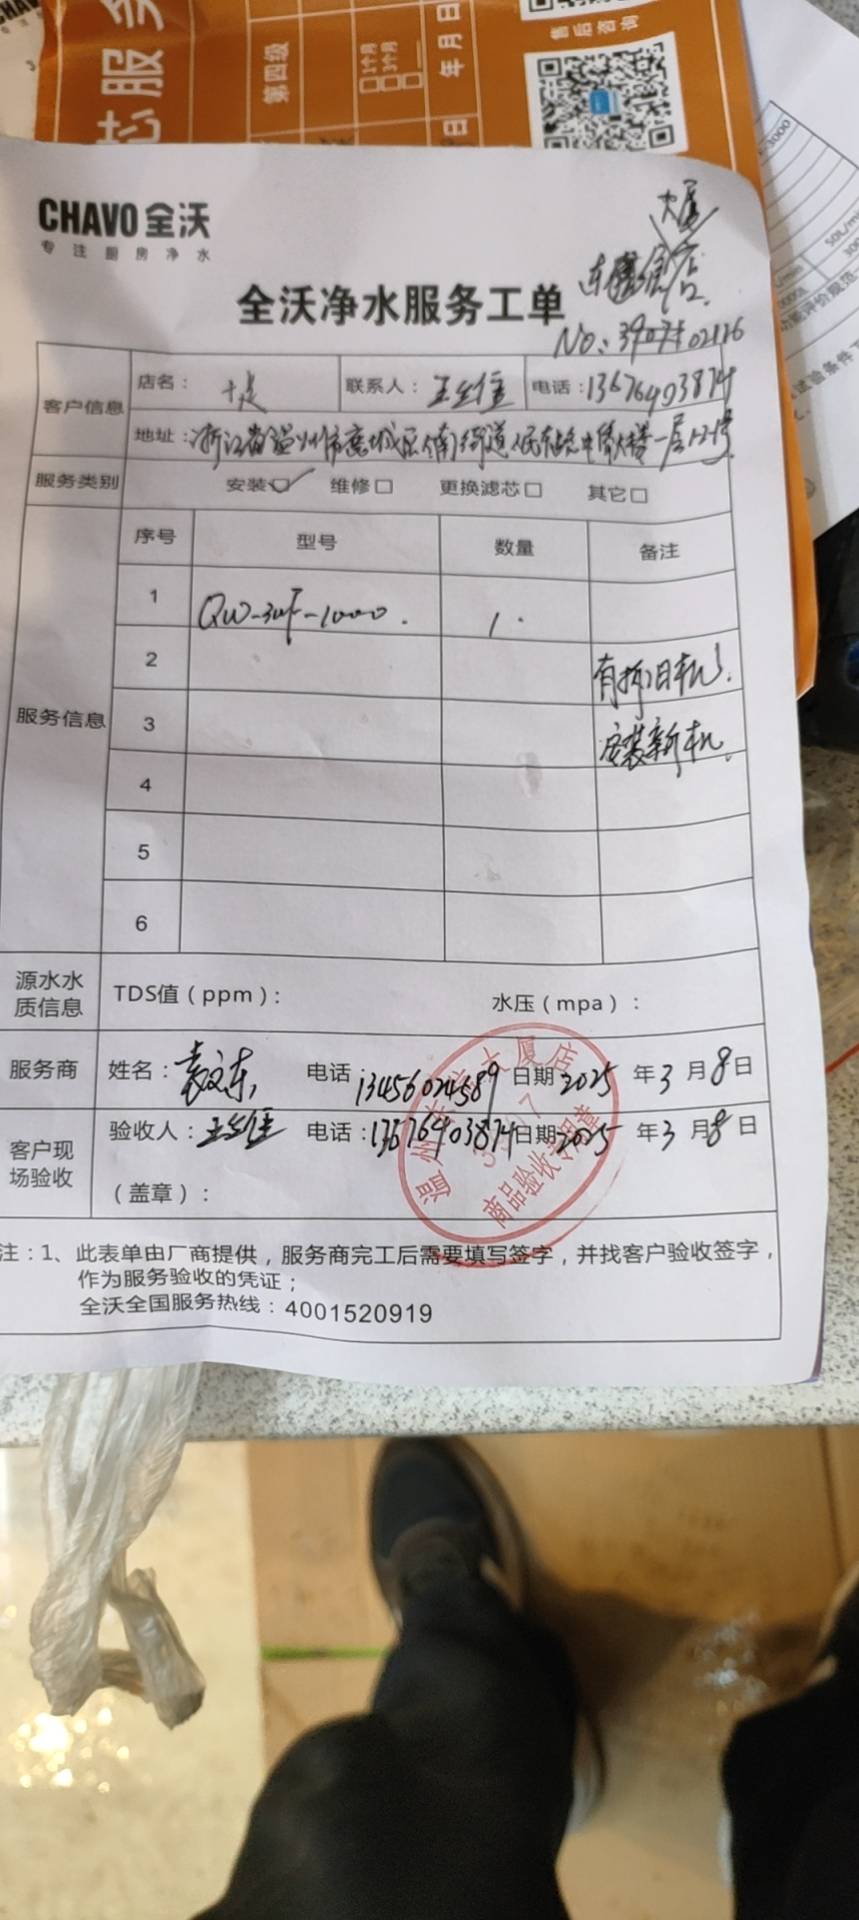 芯服务
第四级
1个月
3个月
年 月 日
售后咨询
CHAVO 全沃
专注厨房净水
大厦
店
全沃净水服务工单
客户信息
店名：
联系人：
电话：13676403874
地址：浙江省温州市鹿城区
服务类别
安装 维修 更换滤芯 其它
序号 型号 数量 备注
服务信息
1 QW-3UF-1000. 1.
2 有拆旧机,
3 安装新机.
4
5
6
源水水质信息
TDS值（ppm）：
水压（mpa）：
服务商
姓名：袁文东
电话：13456024589
日期 2025 年 3 月 8 日
客户现场验收
验收人：
电话：13676403874
日期 2025 年 3 月 8 日
（盖章）：
商品验收专用章
注：1、此表单由厂商提供，服务商完工后需要填写签字，并找客户验收签字，
作为服务验收的凭证；
全沃全国服务热线：4001520919